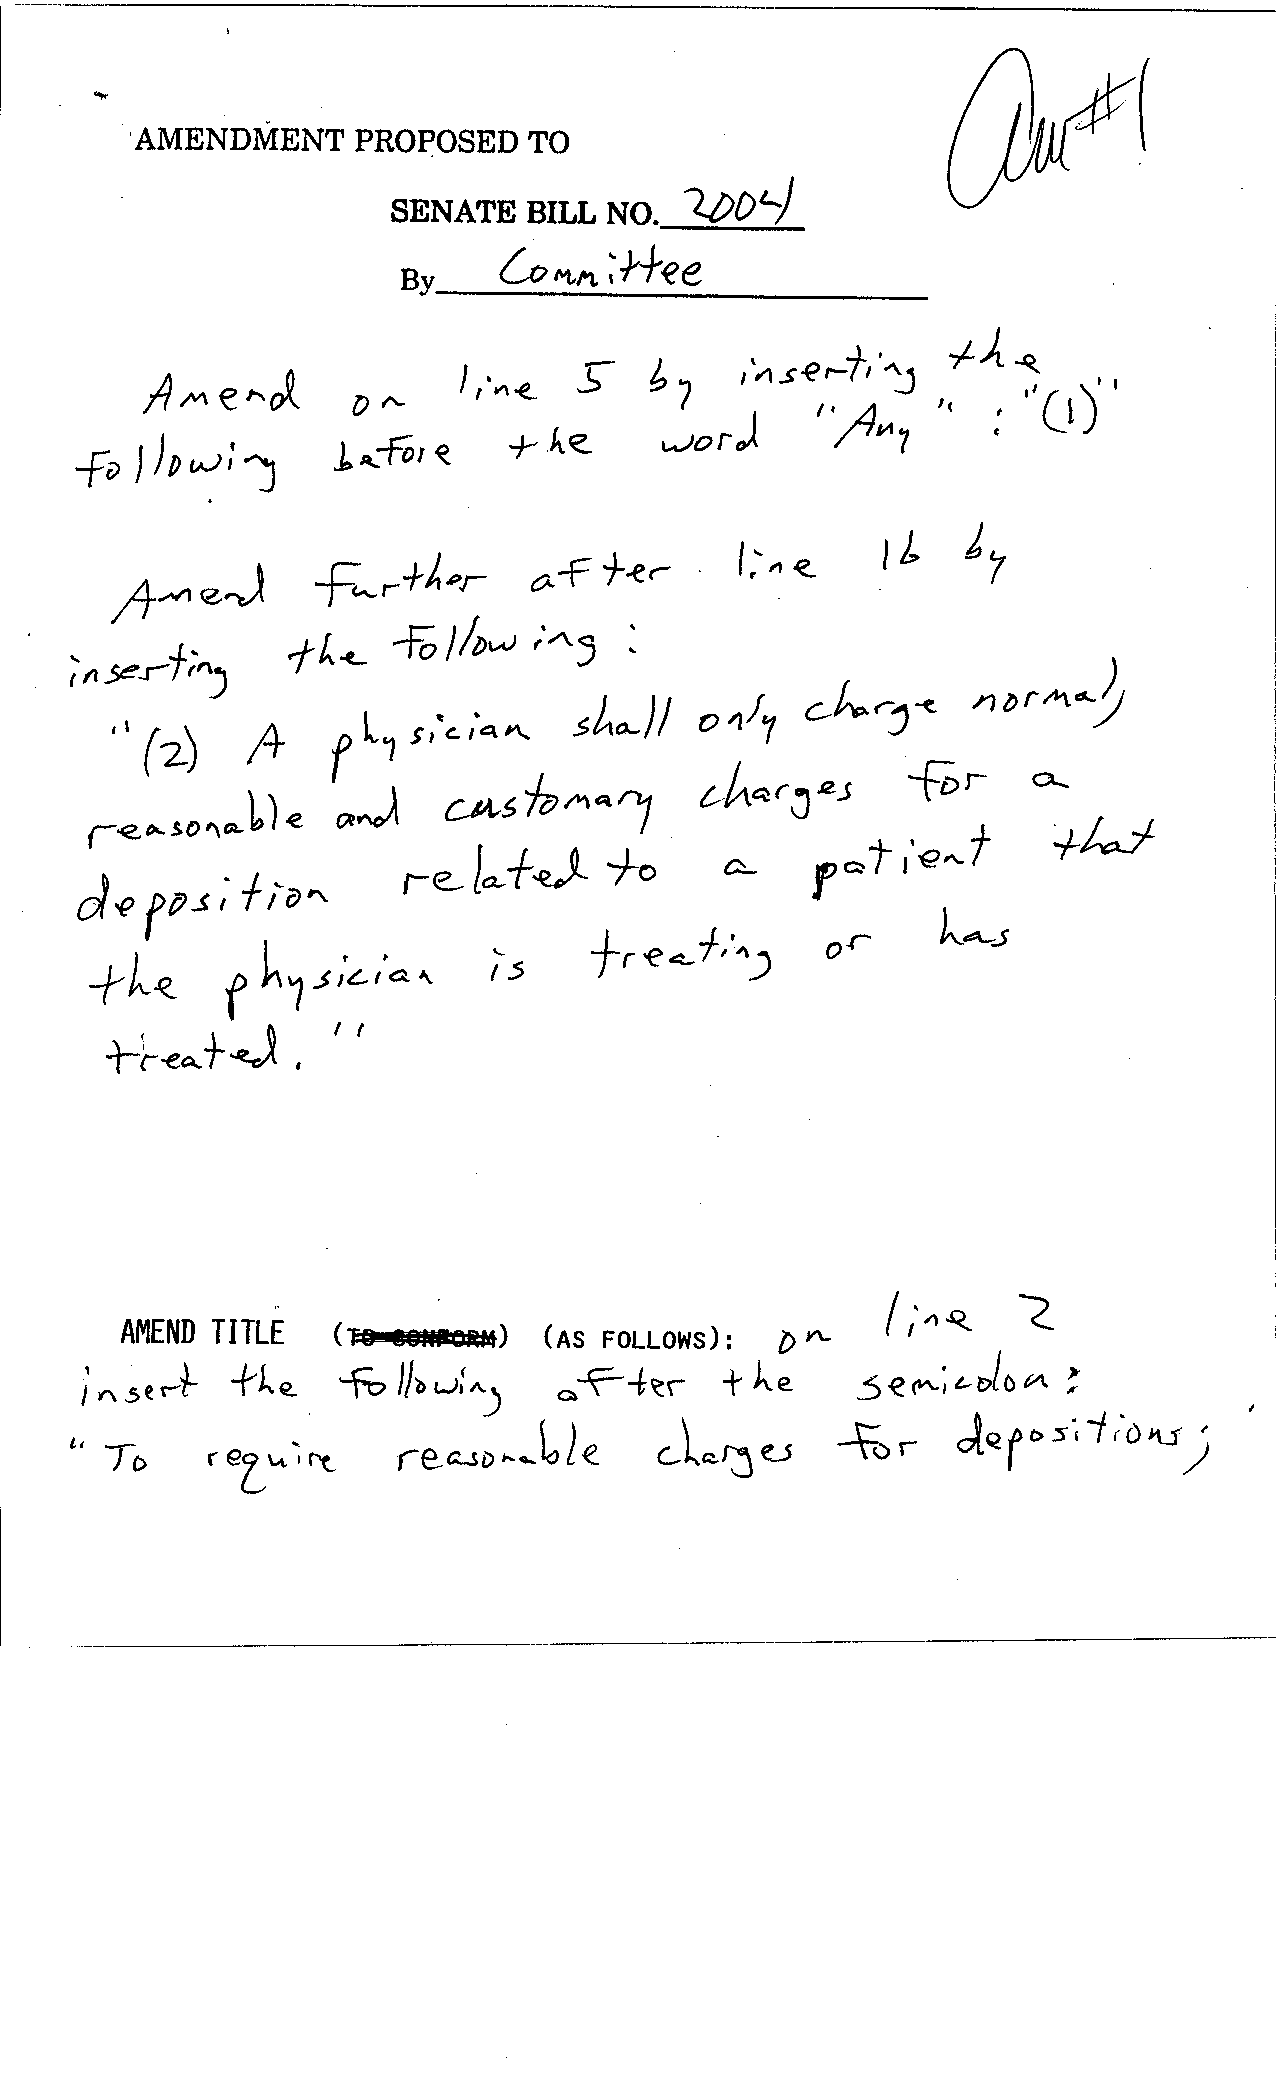 Am #1
AMENDMENT PROPOSED TO
SENATE BILL NO. 2004
By Committee
Amend on line 5 by inserting the
following before the word "Any" : "(1)"
Amend further after line 16 by
inserting the following :
"(2) A physician shall only charge normal,
reasonable and customary charges for a
deposition related to a patient that
the physician is treating or has
treated."
AMEND TITLE (TO CONFORM) (AS FOLLOWS): on line 2
insert the following after the semicolon:
"To require reasonable charges for depositions;"